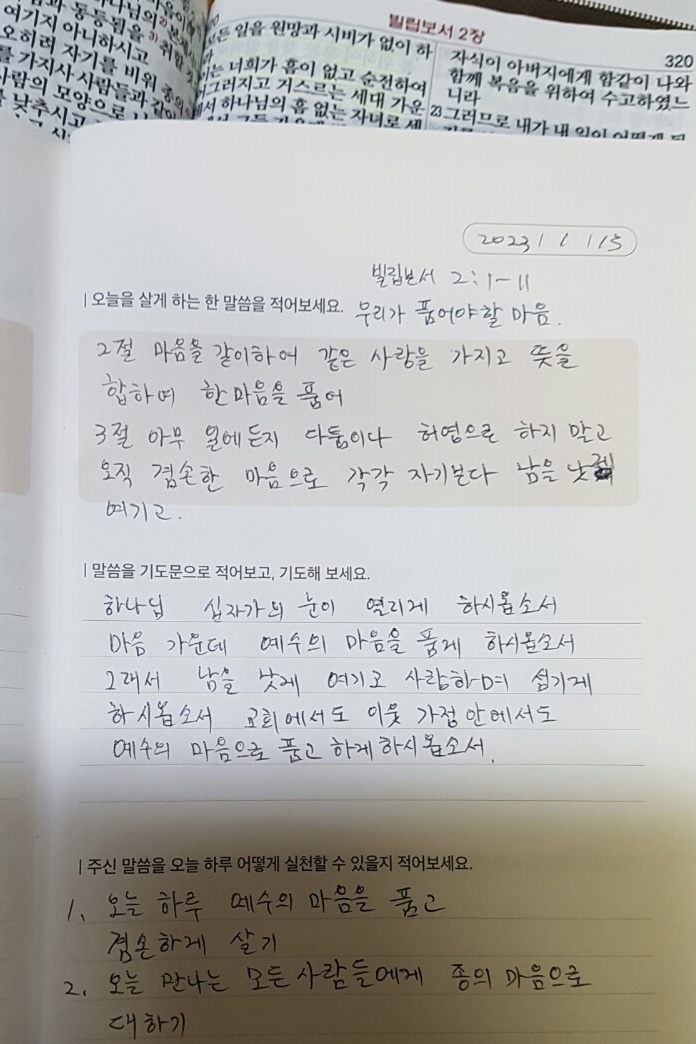 빌립보서 2장
320
동등됨을 3) 취할
여기지 아니하시고
오히려 자기를 비워 종의
를 가지사 사람들과 같이
사람의 모양으로
낮추시고
모든 일을 원망과 시비가 없이 하
이는 너희가 흠이 없고 순전하여
어그러지고 거스르는 세대 가운
에서 하나님의 흠 없는 자녀로 세
자식이 아버지에게 함같이 나와
함께 복음을 위하여 수고하였느
니라
23 그러므로 내가 내 일이 어떻게 될
2023 / 1 / 15
빌립보서 2:1-11
오늘을 살게 하는 한 말씀을 적어보세요. 우리가 품어야할 마음.
2절 마음을 같이하여 같은 사랑을 가지고 뜻을
합하여 한마음을 품어
3절 아무 일에든지 다툼이나 허영으로 하지 말고
오직 겸손한 마음으로 각각 자기보다 남을 낫게
여기고.
말씀을 기도문으로 적어보고, 기도해 보세요.
하나님 십자가의 눈이 열리게 하시옵소서
마음 가운데 예수의 마음을 품게 하시옵소서
그래서 남을 낮게 여기고 사랑하며 섬기게
하시옵소서 교회에서도 이웃 가정 안에서도
예수의 마음으로 품고 하게하시옵소서.
주신 말씀을 오늘 하루 어떻게 실천할 수 있을지 적어보세요.
1. 오늘 하루 예수의 마음을 품고
겸손하게 살기
2. 오늘 만나는 모든 사람들에게 종의 마음으로
대하기